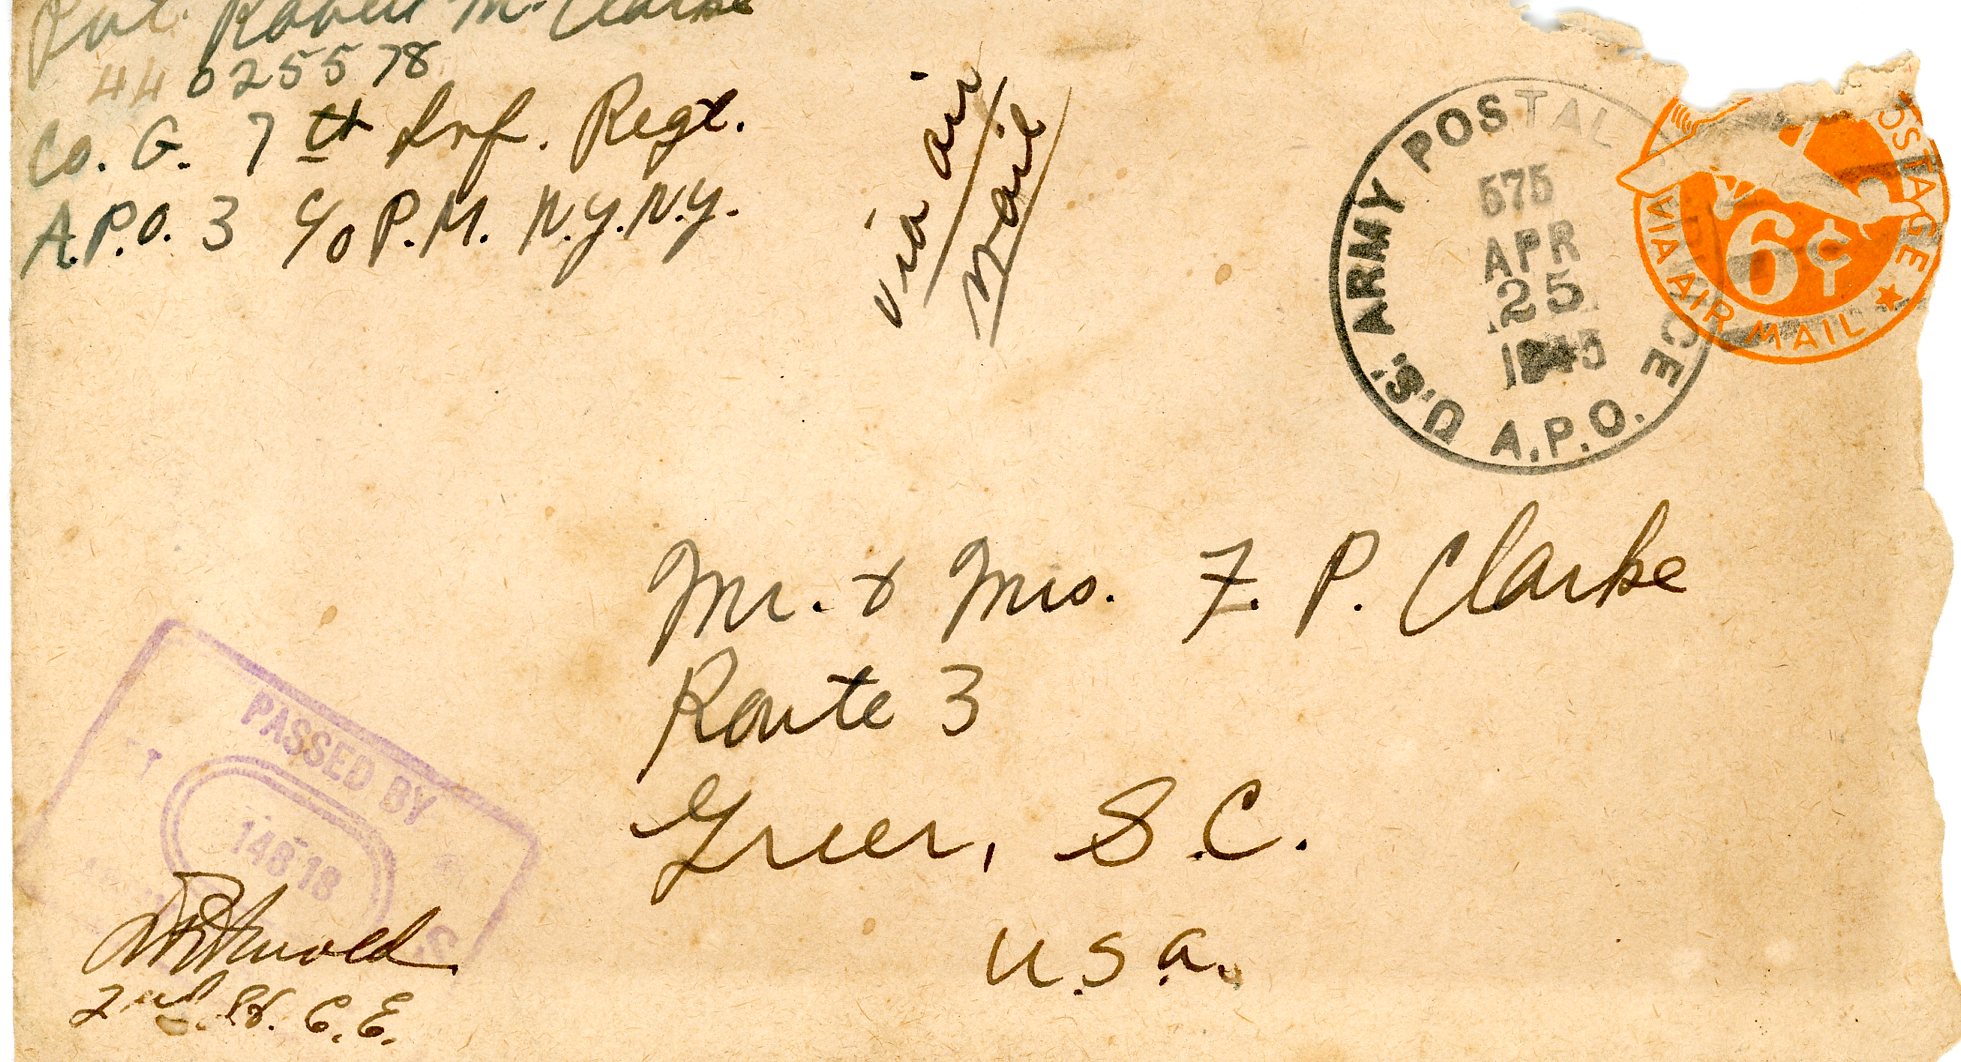 Pvt. Robert M. Clarke
44025578
Co. G. 7th Inf. Regt.
A.P.O. 3 c/o P.M. N.Y. N.Y.
via air
mail
U.S. ARMY POSTAL
CE
A.P.O.
575
APR
25
1945
POSTAGE
6¢
VIA AIR MAIL
Mr. & Mrs. F. P. Clarke
Route 3
Greer, S.C.
U.S.A.
PASSED BY
14818
2nd Lt. C.E.